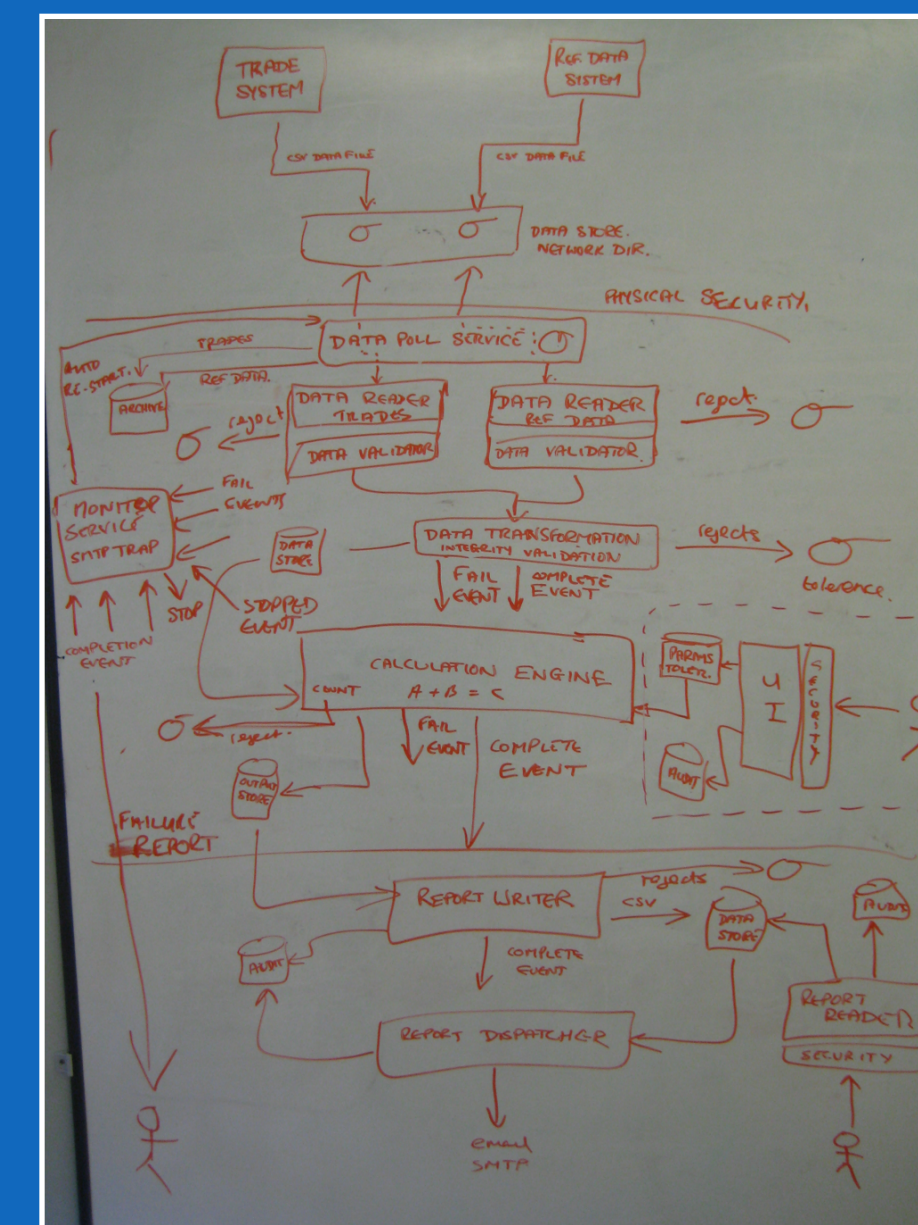 TRADE
SYSTEM
REF. DATA
SYSTEM
CSV DATA FILE
CSV DATA FILE
DATA STORE.
NETWORK DIR.
PHYSICAL SECURITY.
DATA POLL SERVICE
TRADES
AUTO
RE-START.
REF DATA.
ARCHIVE
DATA READER
TRADES
DATA VALIDATOR
reject
DATA READER
REF DATA
DATA VALIDATOR
reject.
FAIL
EVENTS
MONITOR
SERVICE
SMTP TRAP
DATA
STORE
DATA TRANSFORMATION
INTEGRITY VALIDATION
rejects
tolerence.
FAIL
EVENT
COMPLETE
EVENT
STOP
STOPPED
EVENT
COMPLETION
EVENT
CALCULATION ENGINE
COUNT
A + B = C
PARAMS
TOLER.
UI
SECURITY
AUDIT
reject.
FAIL
EVENT
COMPLETE
EVENT
OUTPUT
STORE
FAILURE
REPORT
REPORT WRITER
rejects
CSV
DATA
STORE
AUDIT
AUDIT
COMPLETE
EVENT
REPORT DISPATCHER
REPORT
READER
SECURITY
email
SMTP